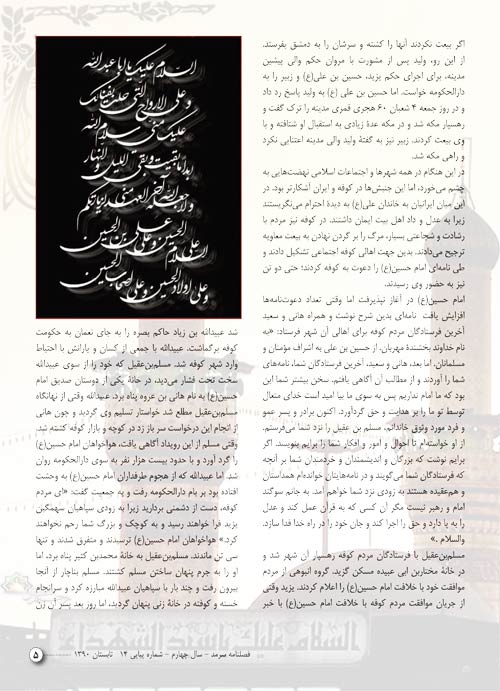 اگر بیعت نکردند آنها را کشته و سرشان را به دمشق بفرستد.
از این رو، ولید پس از مشورت با مروان حکم والی پیشین
مدینه، برای اجرای حکم یزید، حسین بن علی(ع) و زبیر را به
دارالحکومه خواست. اما حسین بن علی (ع) به ولید پاسخ رد داد
و در روز جمعه ۴ شعبان ۶۰ هجری قمری مدینه را ترک گفت و
رهسپار مکه شد و در مکه عدهٔ زیادی به استقبال او شتافته و با
وی بیعت کردند. زبیر نیز به گفتهٔ ولید والی مدینه اعتنایی نکرد
و راهی مکه شد.
در این هنگام در همه شهرها و اجتماعات اسلامی نهضت‌هایی به
چشم می‌خورد، اما این جنبش‌ها در کوفه و ایران آشکارتر بود. در
این میان ایرانیان به خاندان علی(ع) به دیدهٔ احترام می‌نگریستند
زیرا به عدل و داد اهل بیت ایمان داشتند. در کوفه نیز مردم با
رشادت و شجاعتی بسیار، مرگ را بر گردن نهادن به بیعت معاویه
ترجیح می‌دادند. بدین جهت اهالی کوفه اجتماعی تشکیل دادند و
طی نامه‌ای امام حسین(ع) را دعوت به کوفه کردند؛ حتی دو تن
نیز به حضور وی رسیدند.
امام حسین(ع) در آغاز نپذیرفت اما وقتی تعداد دعوت‌نامه‌ها
افزایش یافت نامه‌ای بدین شرح نوشت و همراه هانی و سعید
آخرین فرستادگان مردم کوفه برای اهالی آن شهر فرستاد: «به
نام خداوند بخشندهٔ مهربان. از حسین بن علی به اشراف مؤمنان و
مسلمانان. اما بعد، هانی و سعید، آخرین فرستادگان شما، نامه‌های
شما را آوردند و از مطالب آن آگاهی یافتم. سخن بیشتر شما این
بود که ما امام نداریم پس به سوی ما بیا امید است خدای متعال
توسط تو ما را بر هدایت و حق گردآورد. اکنون برادر و پسر عمو
و فرد مورد وثوق خاندانم، مسلم بن عقیل را نزد شما می‌فرستم.
از او خواسته‌ام تا احوال و امور و افکار شما را برایم بنویسد. اگر
برایم نوشت که بزرگان و اندیشمندان و خردمندان شما بر آنچه
که فرستادگان شما می‌گویند و در نامه‌هایتان خوانده‌ام همداستان
و هم‌عقیده هستند به زودی نزد شما خواهم آمد. به جانم سوگند
امام و رهبر نیست مگر آن کسی که به قرآن عمل کند و عدل
را به پا دارد و حق را اجرا کند و جان خود را در راه خدا فدا سازد.
والسلام .»
مسلم‌بن‌عقیل با فرستادگان مردم کوفه رهسپار آن شهر شد و
در خانهٔ مختاربن ابی عبیده مسکن گزید. گروه انبوهی از مردم
موافقت خود با خلافت امام حسین(ع) را اعلام کردند. یزید وقتی
از جریان موافقت مردم کوفه با خلافت امام حسین(ع) با خبر
السلام علیک یا ابا عبدالله
و علی الارواح التی حلت بفنائک
علیک منی سلام الله
ابدا ما بقیت و بقی اللیل و النهار
و لا جعله الله آخر العهد منی لزیارتکم
السلام علی الحسین و علی علی بن الحسین
و علی اولاد الحسین و علی اصحاب الحسین
شد عبیدالله بن زیاد حاکم بصره را به جای نعمان به حکومت
کوفه برگماشت. عبیدالله با جمعی از کسان و یارانش با احتیاط
وارد شهر کوفه شد. مسلم‌بن‌عقیل که خود را از سوی عبیدالله
سخت تحت فشار می‌دید، در خانهٔ یکی از دوستان صدیق امام
حسین(ع) به نام هانی بن عروه پناه برد. عبیدالله وقتی از نهانگاه
مسلم‌بن‌عقیل مطلع شد خواستار تسلیم وی گردید و چون هانی
از انجام این درخواست سر باز زد در کوچه و بازار کوفه کشته شد.
وقتی مسلم از این رویداد آگاهی یافت، هواخواهان امام حسین(ع)
را گرد آورد و با حدود بیست هزار نفر به سوی دارالحکومه روان
شد. اما عبیدالله که از هجوم طرفداران امام حسین(ع) به وحشت
افتاده بود بر بام دارالحکومه رفت و به جمعیت گفت: «ای مردم
کوفه، دست از دشمنی بردارید زیرا به زودی سپاهیان سهمگین
یزید فرا خواهند رسید و به کوچک و بزرگ شما رحم نخواهند
کرد.» هواخواهان امام حسین(ع) ترسیدند و متفرق شدند و تنها
سی تن ماندند. مسلم‌بن‌عقیل به خانهٔ محمدبن کثیر پناه برد، اما
او را به جرم پنهان ساختن مسلم کشتند. مسلم بناچار از آنجا
بیرون رفت و چند بار با سپاهیان عبیدالله مبارزه کرد و سرانجام
خسته و کوفته در خانهٔ زنی پنهان گردید، اما روز بعد پسر آن زن
السلام علیک یا سید الشهداء
فصلنامه سرمد - سال چهارم - شماره پیاپی ۱۴ تابستان ۱۳۹۰
۵